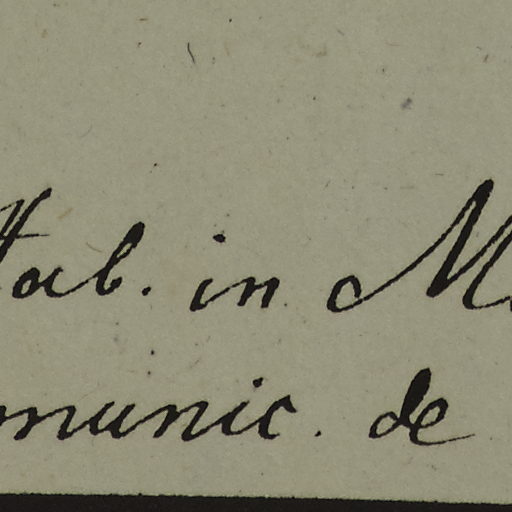 Hab. in M
munic. de